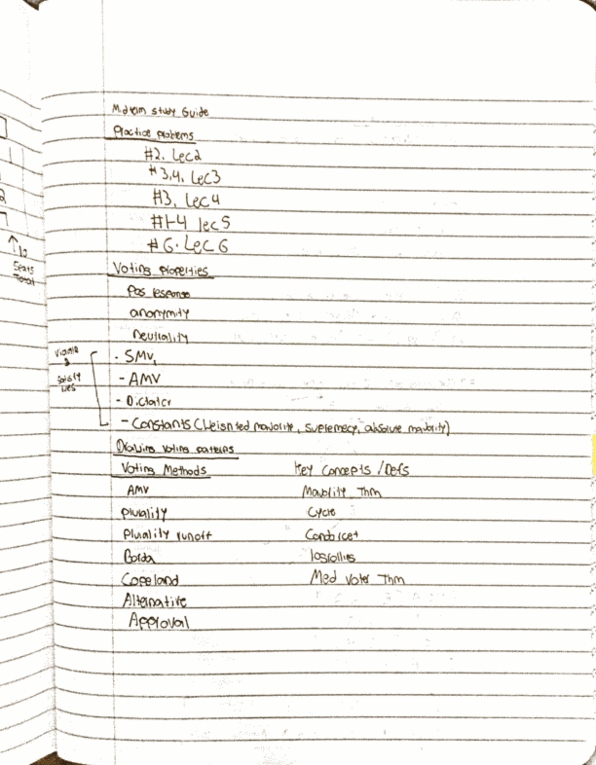 Midterm Study Guide
Practice problems
#2. Lec2
#3,4, Lec3
#3, Lec4
#1-4 lec5
#6. Lec6
10
Seats
Total
Voting properties
Pos response
anonymity
neutrality
- SMV,
- AMV
- Dictator
- Constants (Weighted majority, supremecy, absolute majority)
satisfy
Drawing voting patterns
Voting Methods
AMV
plurality
plurality runoff
Borda
Copeland
Alternative
Approval
Key Concepts / Defs
Majority Thm
Cycle
Condorcet
Med Voter Thm